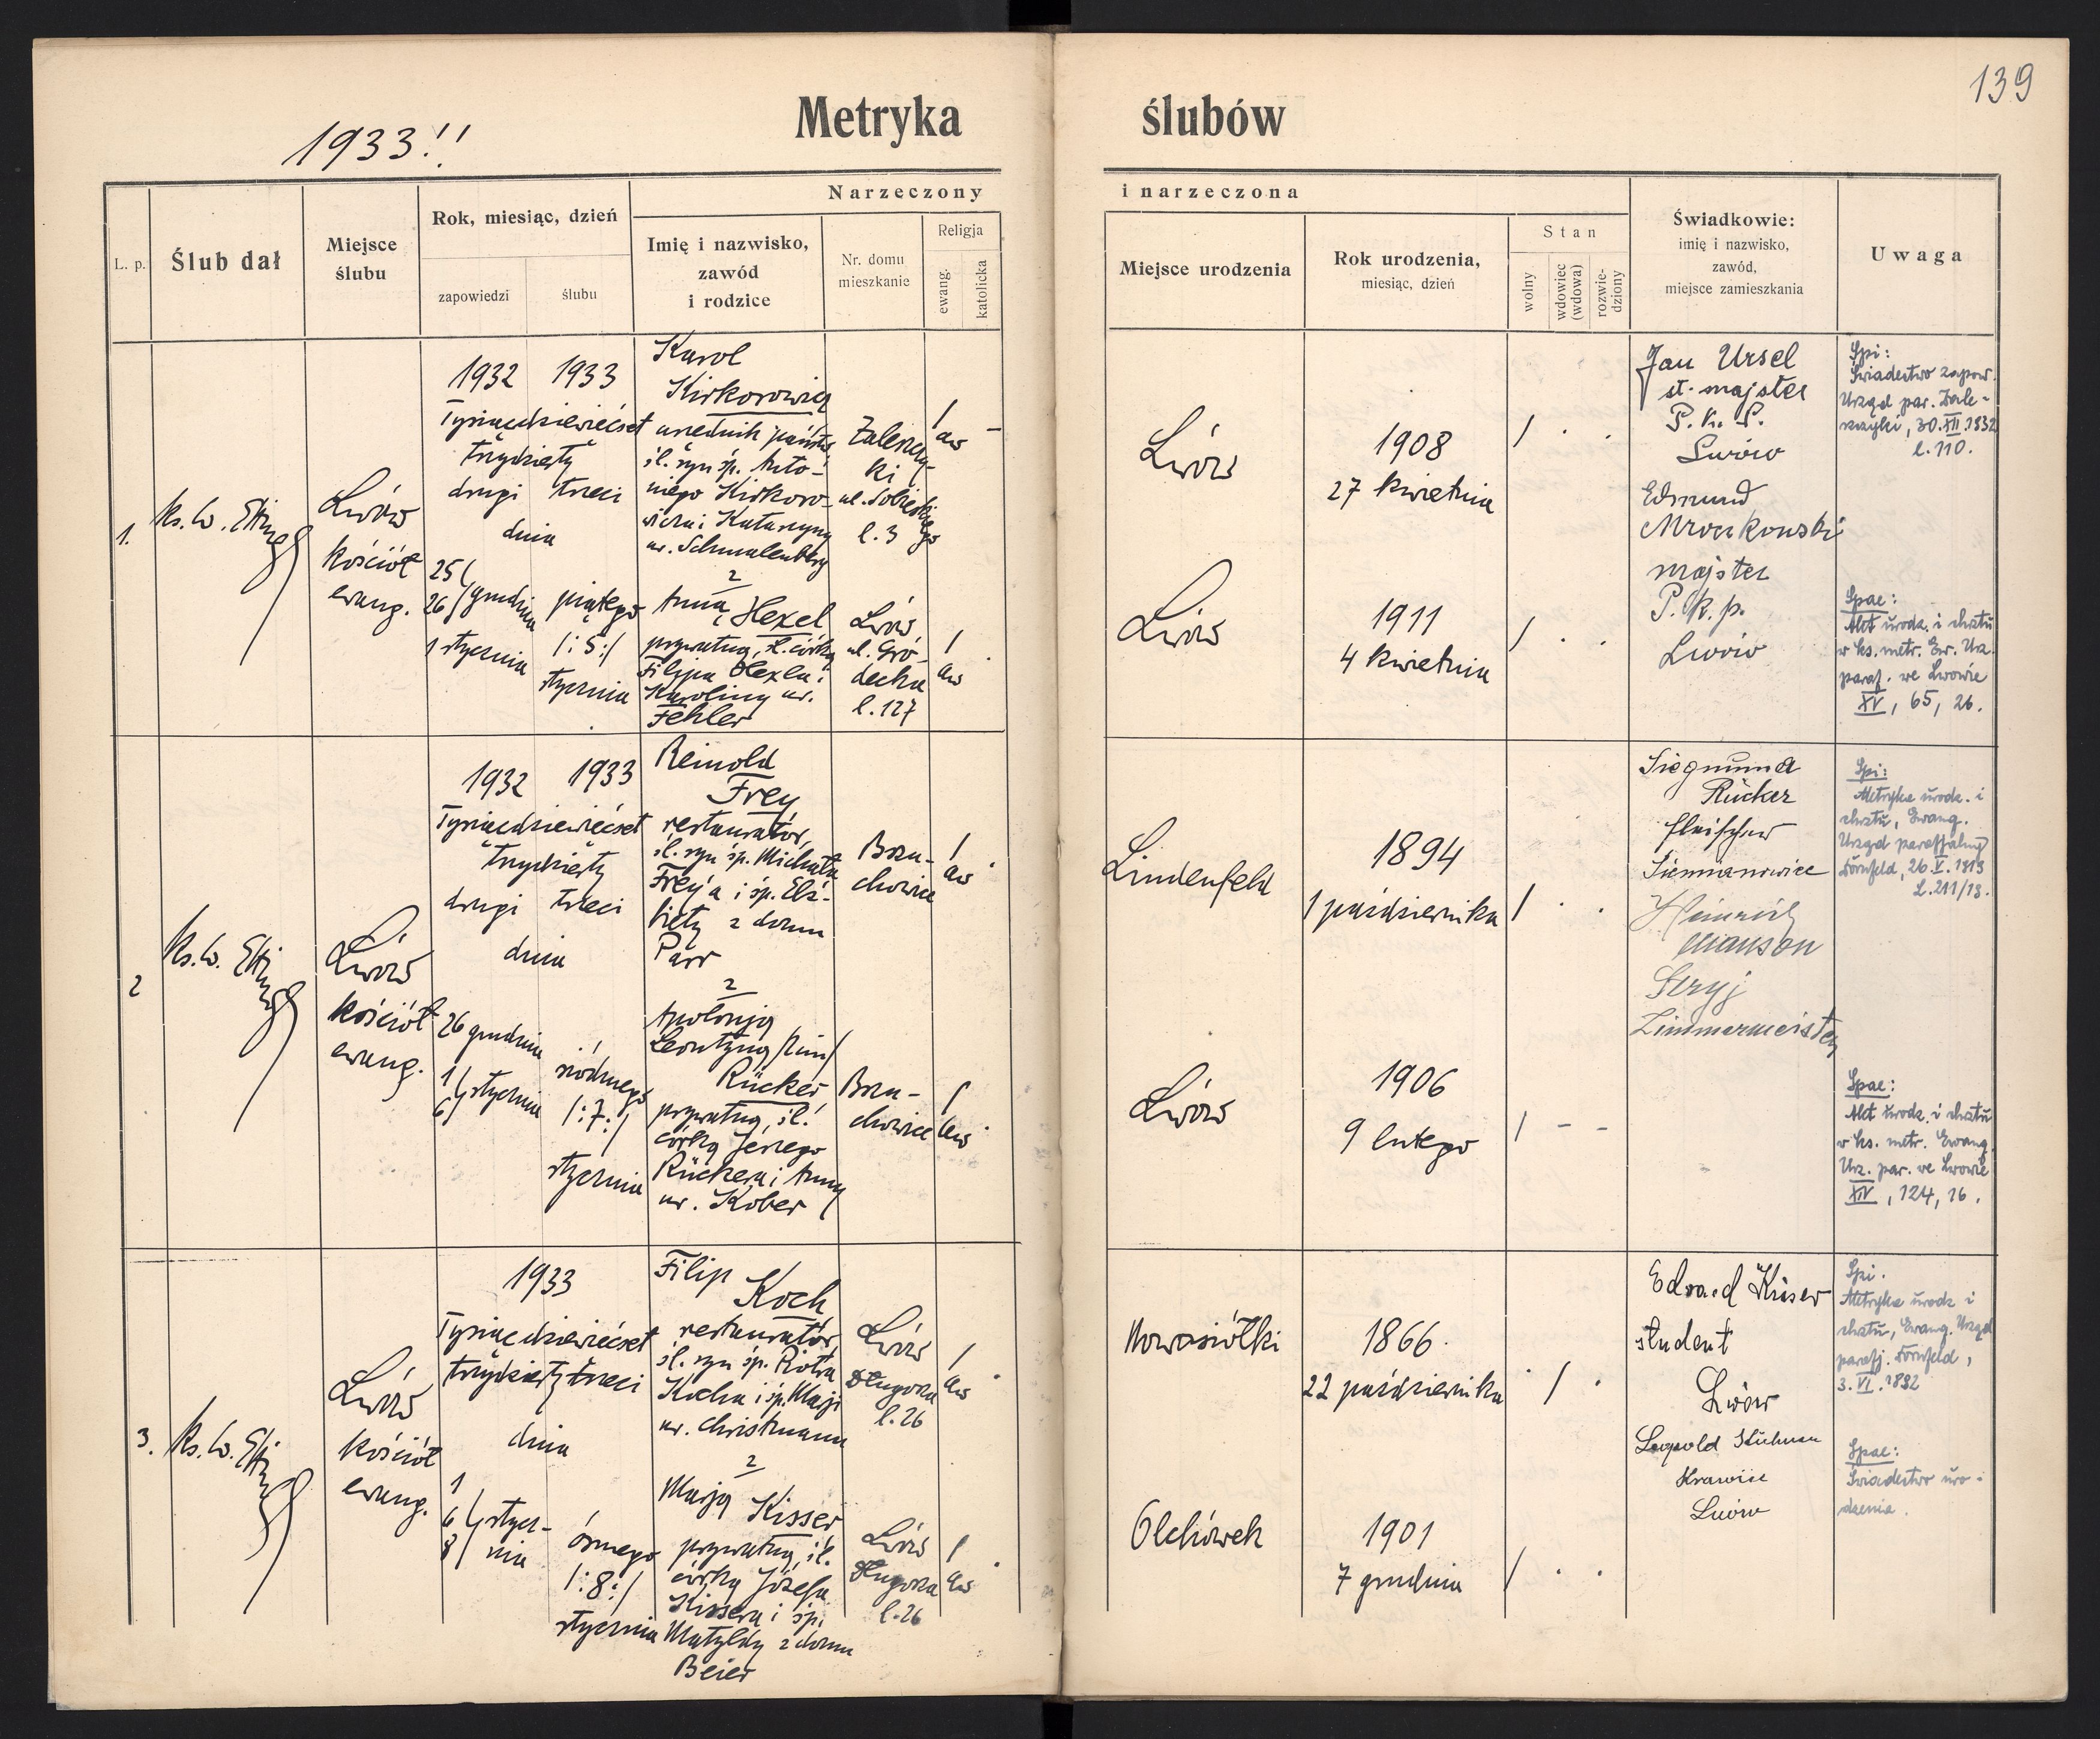 139
1933!!
Metryka ślubów
L. p.
Ślub dał
Miejsce
ślubu
Rok, miesiąc, dzień
zapowiedzi
ślubu
Narzeczony
Imię i nazwisko,
zawód
i rodzice
Nr. domu
mieszkanie
Religja
ewang.
katolicka
i narzeczona
Miejsce urodzenia
Rok urodzenia,
miesiąc, dzień
Stan
wolny
wdowiec
(wdowa)
rozwie-
dziony
Świadkowie:
imię i nazwisko,
zawód,
miejsce zamieszkania
Uwaga
1.
ks. W.
Lwów
kościół
ewang.
1932 1933
Tysiącdziewięćset
trzydzięty
drugi trzeci
dnia
25
26 grudnia
1 stycznia
piątego
/:5:/
stycznia
Karol
Kirkorowicz
urzędnik państw.
śl. syn śp. Anto-
niego Kirkoro-
wicza i Katarzyny
ur. Schmalenberg
z
Anną Hexel
prywatną, śl. córką
Filipa Hexla i
Karoliny ur.
Fehler
Zaleszczy-
ki
ul. Sobieskie
go
l. 3
Lwów
ul. Gró-
decka
l. 127
1
aw
1
aw
Lwów
1908
27 kwietnia
1
Lwów
1911
4 kwietnia
1
Jan Ursel
st. majster
P. K. P.
Lwów
Edmund
Mroczkowski
majster
P. k. p.
Lwów
Spi:
Świadectwo zapow.
Urząd par. Zale-
szczyki, 30.XII.1932
l. 110.
Spae:
Akt urodz. i chrztu
w ks. metr. Ew. Urz.
paraf. we Lwowie
XV, 65, 26.
2
ks. W.
Lwów
kościół
ewang.
1932 1933
Tysiącdziewięćset
trzydzięty
drugi trzeci
dnia
26 grudnia
1
6 stycznia
siódmego
/:7:/
stycznia
Reinold
Frey
restaurator,
śl. syn śp. Michała
Frey'a i śp. Elż-
biety z domu
Parr
z
Apolonją
Leontyną
Rücker
prywatną, śl.
córką Jerzego
Rückera i Anny
ur. Kober
Brzu-
chowice
Brzu-
chowice
1
aw
1
aw
Lindenfeld
1894
1 października
1
Lwów
1906
9 lutego
1 - -
Siegmund
Rücker
Fleischer
Heinrich
Manson
Stryj
Zimmermeister
Spi:
Metryka urodz. i
chrztu, Ewang.
Urząd parafjalny
Dornfeld, 26.V.1913
L. 211/13.
Spae:
Akt urodz. i chrztu
w ks. metr. Ewang.
Urz. par. we Lwowie
XIV, 124, 16.
3.
ks. W.
Lwów
kościół
ewang.
1933
Tysiącdziewięćset
trzydzięty trzeci
dnia
1
6 stycz-
8 nia
ósmego
/:8:/
stycznia
Filip
Koch
restaurator,
śl. syn śp. Piotra
Kocha i śp. Marji
ur. Christmann
z
Marją
Kisser
prywatną, śl.
córką Józefa
Kissera i śp.
Matyldy z domu
Beier
Lwów
Długosza
l. 26
Lwów
Długosza
l. 26
1
aw
1
aw
Nowosiółki
1866.
22 października
1
Olchówek
1901
7 grudnia
1
Edward Kisser
student
Lwów
Leopold
Krawiec
Lwów
Spi.
Metryka urodz. i
chrztu, Ewang. Urząd
parafj. Dornfeld,
3.VI.1892
Spae:
Świadectwo uro-
dzenia.